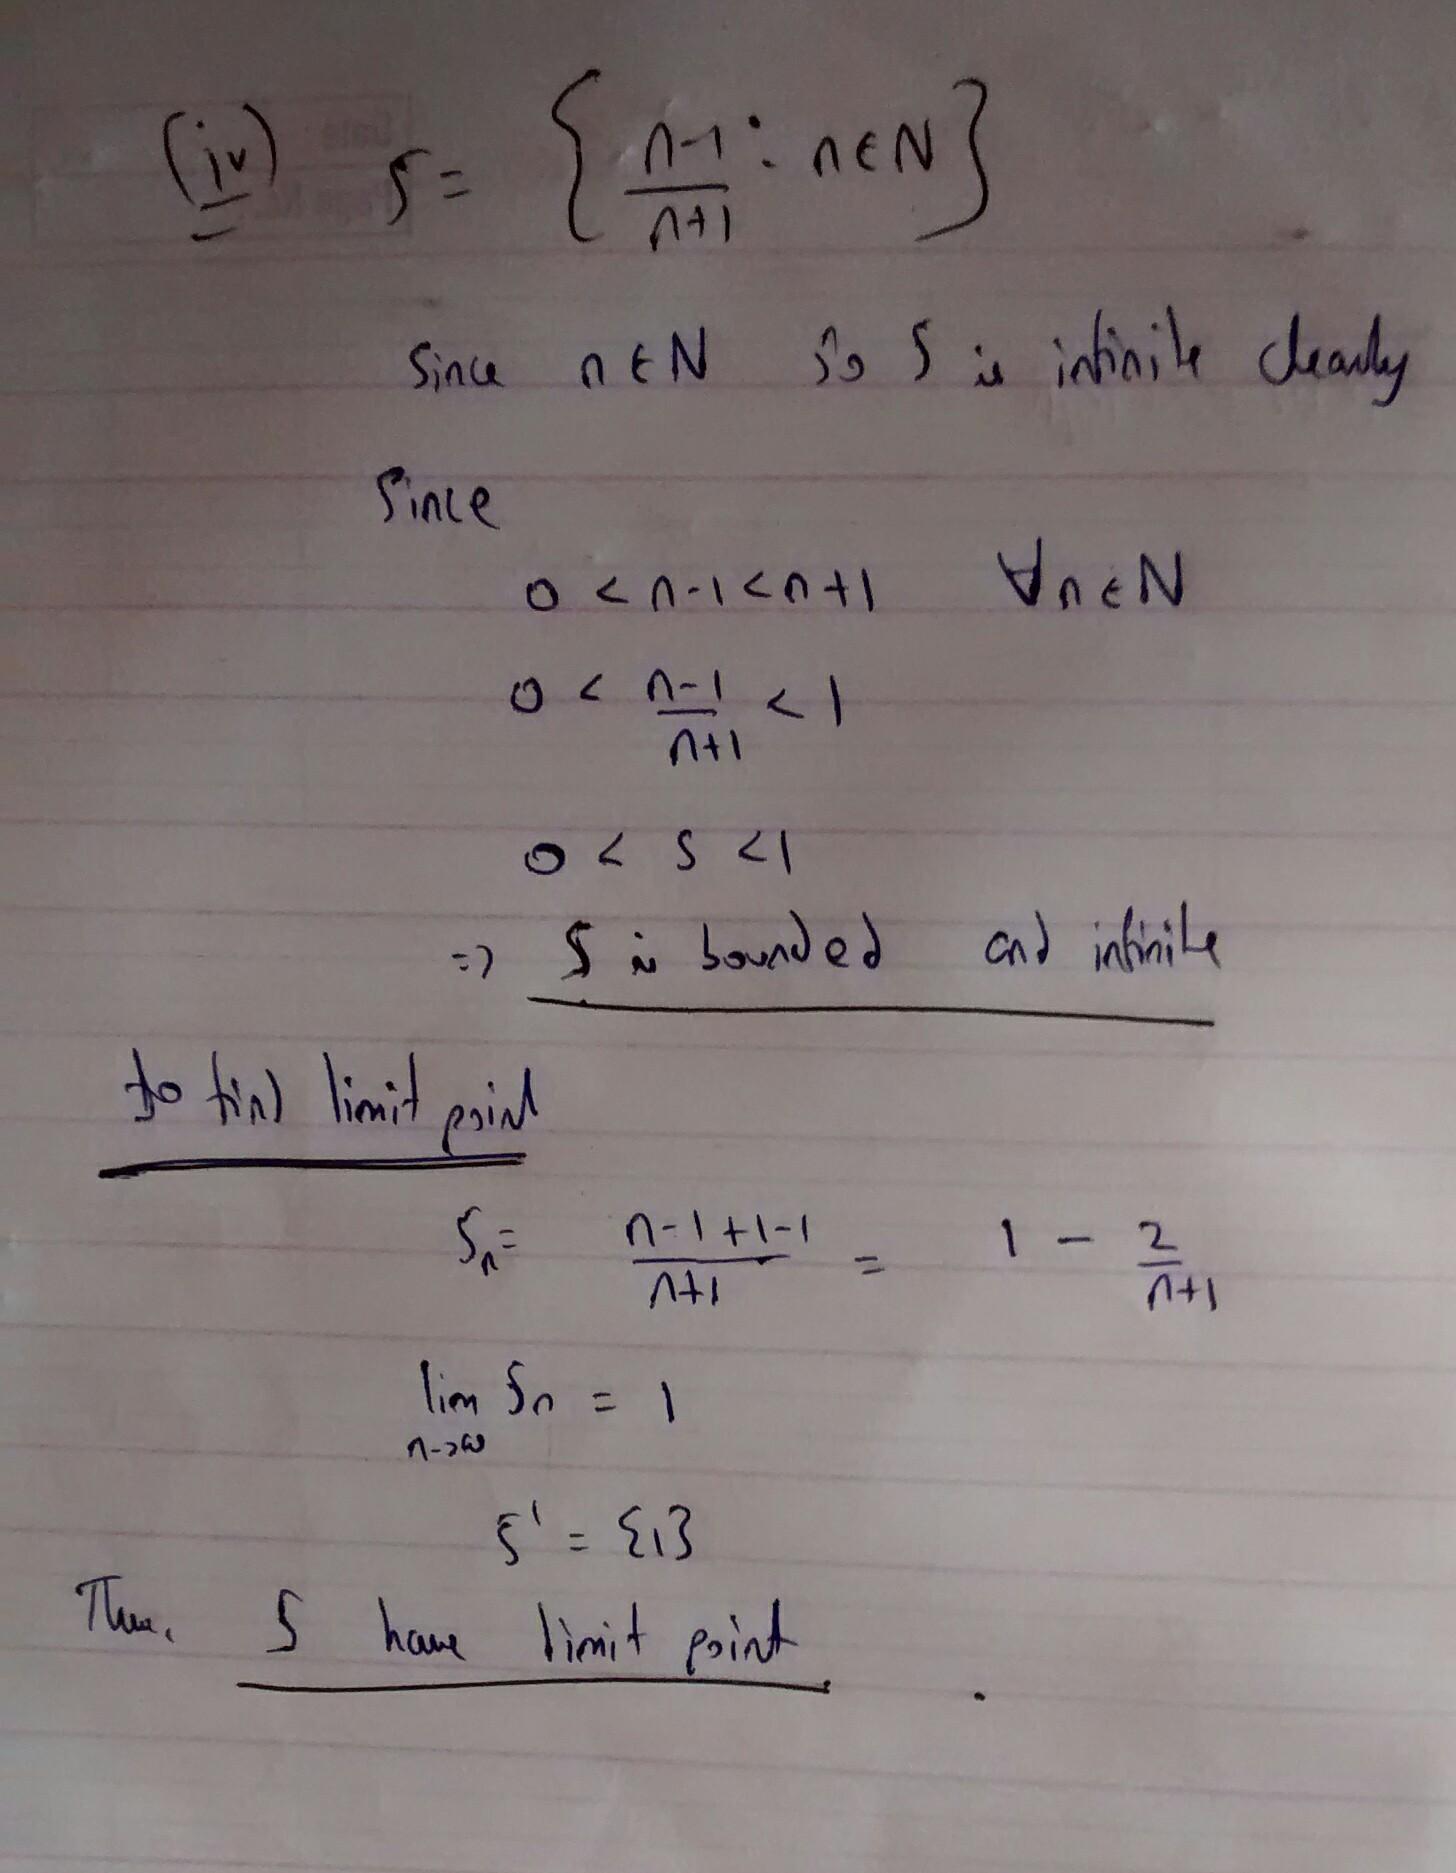 (iv) S = { n-1/n+1 : n∈N }
Since n∈N So S is infinite clearly
Since
0 < n-1 < n+1 ∀n∈N
0 < n-1/n+1 < 1
0 < S < 1
=> S is bounded and infinite
to find limit point
Sn = n-1+1-1/n+1 = 1 - 2/n+1
lim Sn = 1
n->∞
S' = {1}
S have limit point .